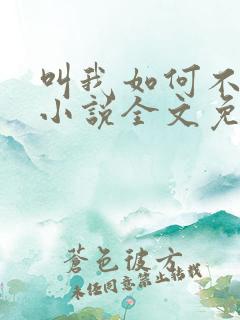 叫我如何不
小说全文免
蒼色彼方
未经同意禁止转载